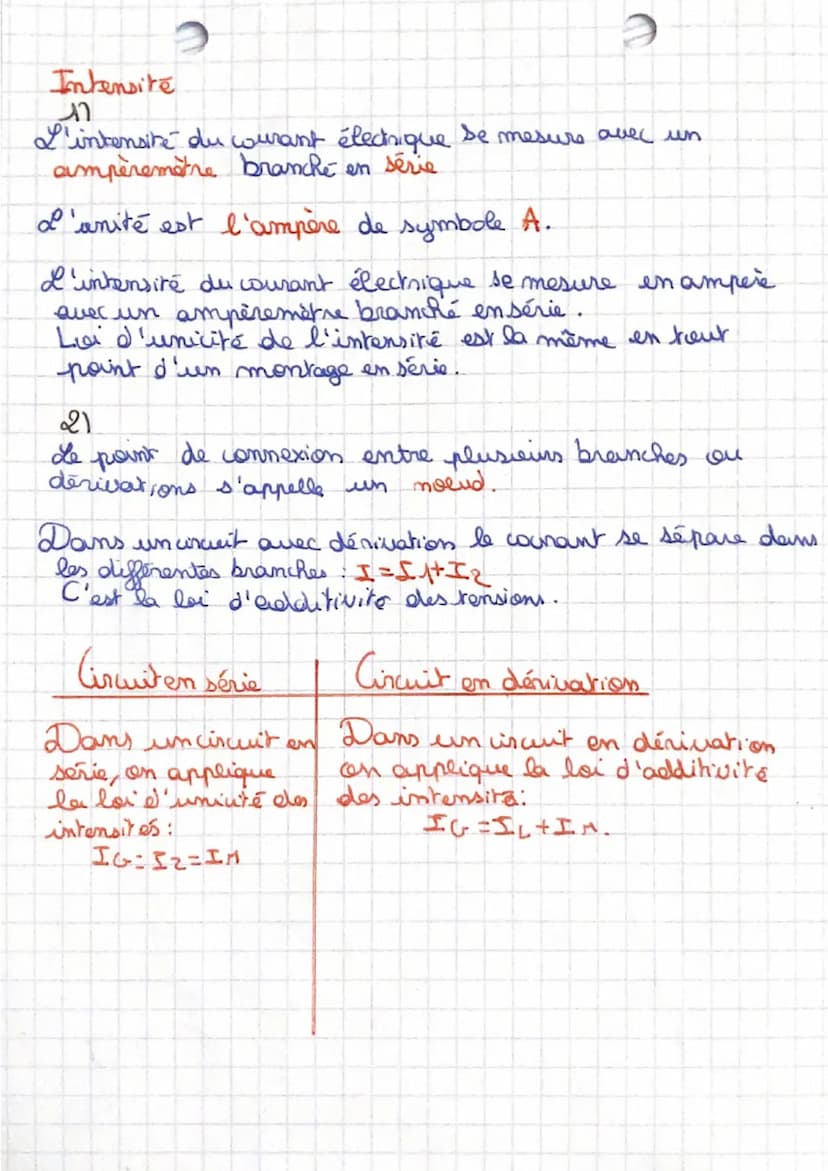 Intensité
1)
L'intensité du courant électrique se mesure avec un
ampèremètre branché en série
L'unité est l'ampère de symbole A.
L'intensité du courant électrique se mesure en ampère
avec un ampèremètre branché en série.
Loi d'unicité de l'intensité est la même en tout
point d'un montage en série.
2)
Le point de connexion entre plusieurs branches ou
dérivations s'appelle un noeud.
Dans un circuit avec dérivation le courant se sépare dans
les différentes branches : I=I1+I2
C'est la loi d'additivité des tensions.
Circuit en série
Circuit en dérivation
Dans un circuit en
série, on applique
la loi d'unicité des
intensités :
IG=I2=IM
Dans un circuit en dérivation
on applique la loi d'additivité
des intensité:
IG=IL+IM.